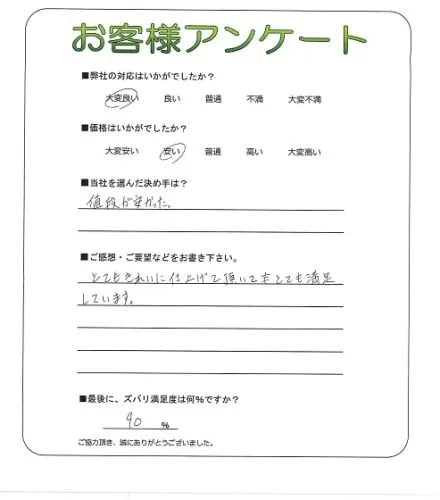 お客様アンケート
■弊社の対応はいかがでしたか？
大変良い 良い 普通 不満 大変不満
■価格はいかがでしたか？
大変安い 安い 普通 高い 大変高い
■当社を選んだ決め手は？
値段が安かった。
■ご感想・ご要望などをお書き下さい。
とてもきれいに仕上げて頂いて とても満足
しています。
■最後に、ズバリ満足度は何％ですか？
90 %
ご協力頂き、誠にありがとうございました。